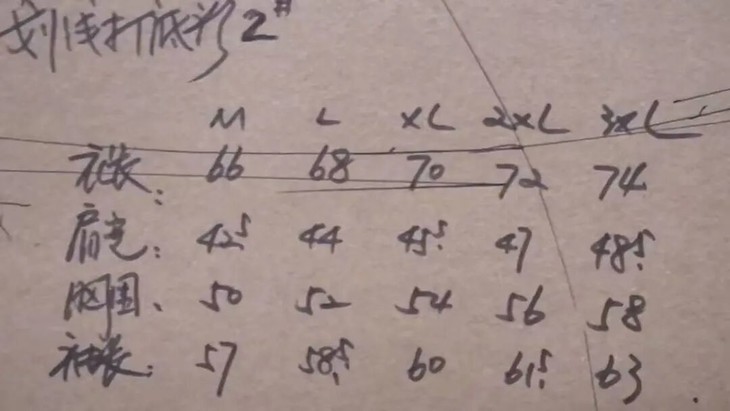 划线打底衫2#
M L XL 2XL 3XL
衣长: 66 68 70 72 74
肩宽: 42.5 44 45.5 47 48.5
胸围、 50 52 54 56 58
袖长: 57 58.5 60 61.5 63